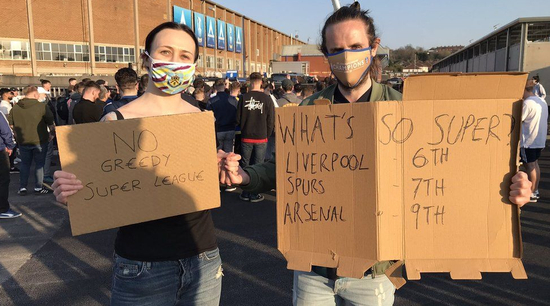 NO
GREEDY
SUPER LEAGUE
WHAT'S SO SUPER?
LIVERPOOL 6TH
SPURS 7TH
ARSENAL 9TH